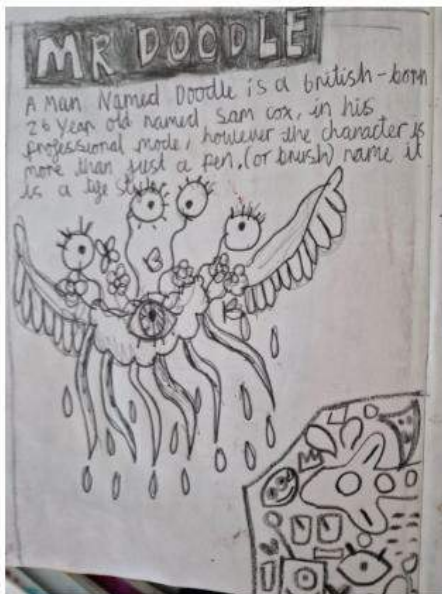 MR DOODLE
A Man Named Doodle is a british-born
26 Year old named Sam cox, in his
professional mode, however the character is
more than just a pen, (or brush) name it
is a life style.